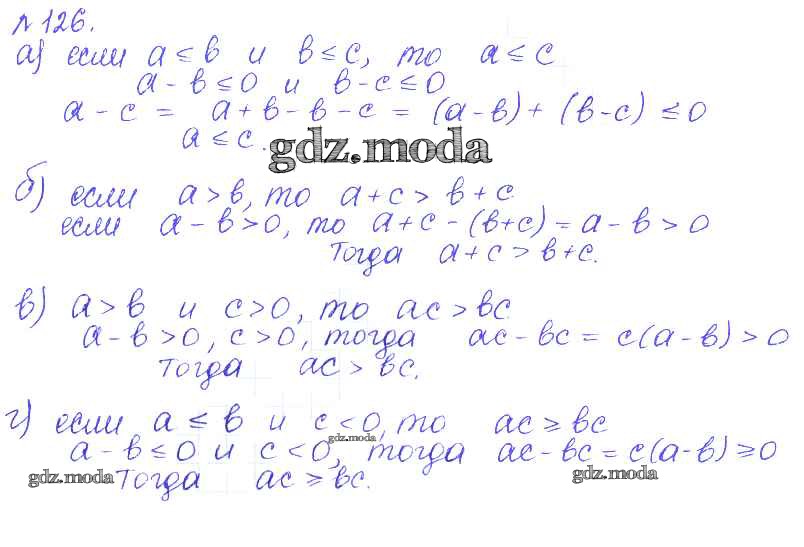 № 126.
а) если a ≤ b и b ≤ c, то a ≤ c
a - b ≤ 0 и b - c ≤ 0
a - c = a + b - b - c = (a - b) + (b - c) ≤ 0
a ≤ c.
gdz.moda
б) если a > b, то a + c > b + c
если a - b > 0, то a + c - (b + c) = a - b > 0
Тогда a + c > b + c.
в) a > b и c > 0, то ac > bc
a - b > 0, c > 0, тогда ac - bc = c(a - b) > 0
Тогда ac > bc.
г) если a ≤ b и c < 0, то ac ≥ bc
gdz.moda
a - b ≤ 0 и c < 0, тогда ac - bc = c(a - b) ≥ 0
gdz.moda Тогда ac ≥ bc. gdz.moda